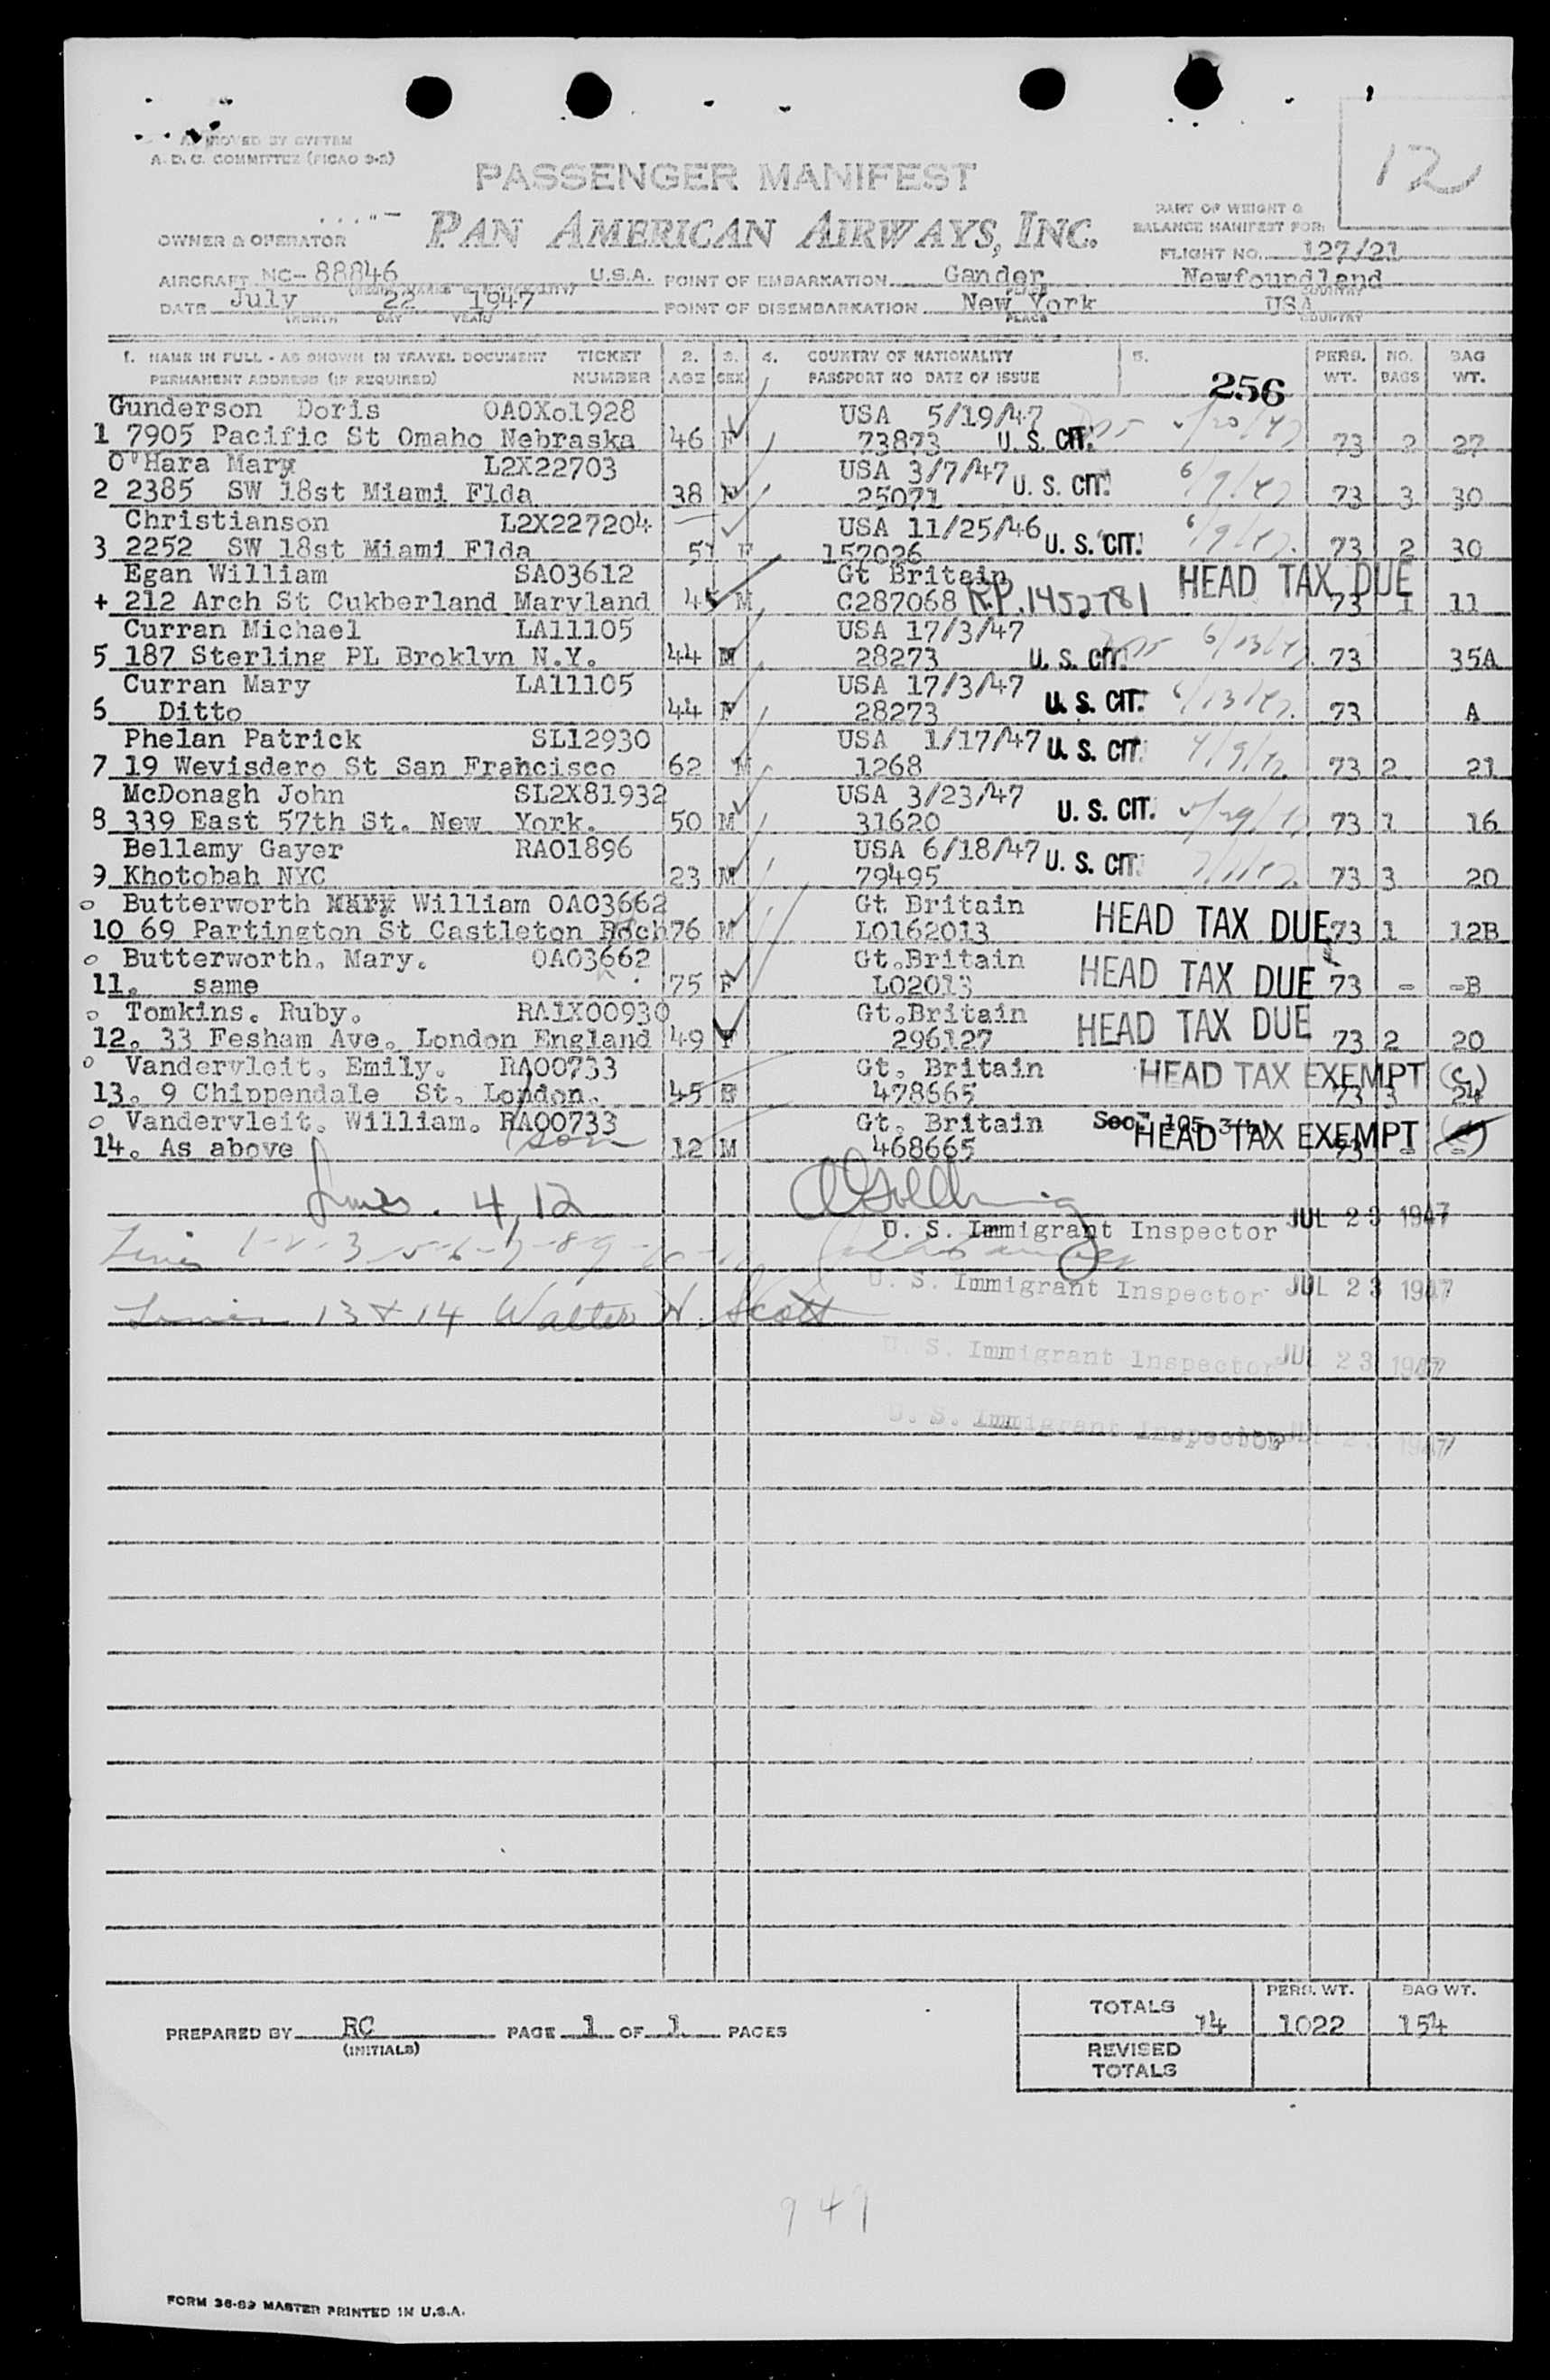 APPROVED BY SYSTEM
A. D. C. COMMITTEE (PICAO 9-2)
12
PASSENGER MANIFEST
PAN AMERICAN AIRWAYS, INC.
PART OF WEIGHT &
BALANCE MANIFEST FOR:
OWNER & OPERATOR
FLIGHT NO. 127/21
AIRCRAFT NC- 88846 U.S.A. POINT OF EMBARKATION Gander Newfoundland
PLACE COUNTRY
DATE July 22 1947 POINT OF DISEMBARKATION New York USA
(MONTH DAY YEAR) PLACE COUNTRY
1. NAME IN FULL - AS SHOWN IN TRAVEL DOCUMENT TICKET 2. 3. 4. COUNTRY OF NATIONALITY 5. PERS. NO. BAG
PERMANENT ADDRESS (IF REQUIRED) NUMBER AGE SEX PASSPORT NO DATE OF ISSUE 256 WT. BAGS WT.
Gunderson Doris OAOXo1928 USA 5/19/47
1 7905 Pacific St Omaho Nebraska 46 F 73873 U. S. CIT. 73 2 27
O'Hara Mary L2X22703 USA 3/7/47 6/9/47
2 2385 SW 18st Miami Flda 38 F 25071 U. S. CIT. 73 3 30
Christianson L2X227204 USA 11/25/46 6/9/47
3 2252 SW 18st Miami Flda 51 F 157026 U. S. CIT. 73 2 30
Egan William SA03612 Gt Britain HEAD TAX DUE
+ 212 Arch St Cukberland Maryland 45 M C287068 R.P. 1452781 73 1 11
Curran Michael LA11105 USA 17/3/47 6/13/47
5 187 Sterling PL Broklyn N.Y. 44 M 28273 U. S. CIT. 73 35A
Curran Mary LA11105 USA 17/3/47 6/13/47
6 Ditto 44 F 28273 U. S. CIT. 73 A
Phelan Patrick SL12930 USA 1/17/47 U. S. CIT.
7 19 Wevisdero St San Francisco 62 M 1268 73 2 21
McDonagh John SL2X81932 USA 3/23/47
8 339 East 57th St. New York. 50 M 31620 U. S. CIT. 73 1 16
Bellamy Gayer RA01896 USA 6/18/47
9 Khotobah NYC 23 M 79495 U. S. CIT. 73 3 20
o Butterworth William OA03662 Gt Britain
10 69 Partington St Castleton Roch 76 M L0162013 HEAD TAX DUE 73 1 12B
o Butterworth. Mary. OA03662 Gt.Britain
11. same 75 F L02013 HEAD TAX DUE 73 - -B
o Tomkins. Ruby. RA1X00930 Gt.Britain
12. 33 Fesham Ave. London England 49 F 296127 HEAD TAX DUE 73 2 20
o Vandervleit. Emily. RA00733 Gt. Britain HEAD TAX EXEMPT (C)
13. 9 Chippendale St. London. 45 F 478665 73 3 24
o Vandervleit. William. RA00733 Gt. Britain
14. As above (son 12 M 468665 HEAD TAX EXEMPT 73 - -
Lines. 4, 12
U. S. Immigrant Inspector JUL 23 1947
Lines 1-2-3-5-6-7-8-9-10-11
U. S. Immigrant Inspector JUL 23 1947
Lines 13 & 14 Walter W. Scott
U. S. Immigrant Inspector JUL 23 1947
U. S. Immigrant Inspector JUL 23 1947
PERS. WT. BAG WT.
TOTALS 14 1022 154
PREPARED BY RC PAGE 1 OF 1 PAGES
(INITIALS)
REVISED
TOTALS
949
FORM 36-89 MASTER PRINTED IN U.S.A.